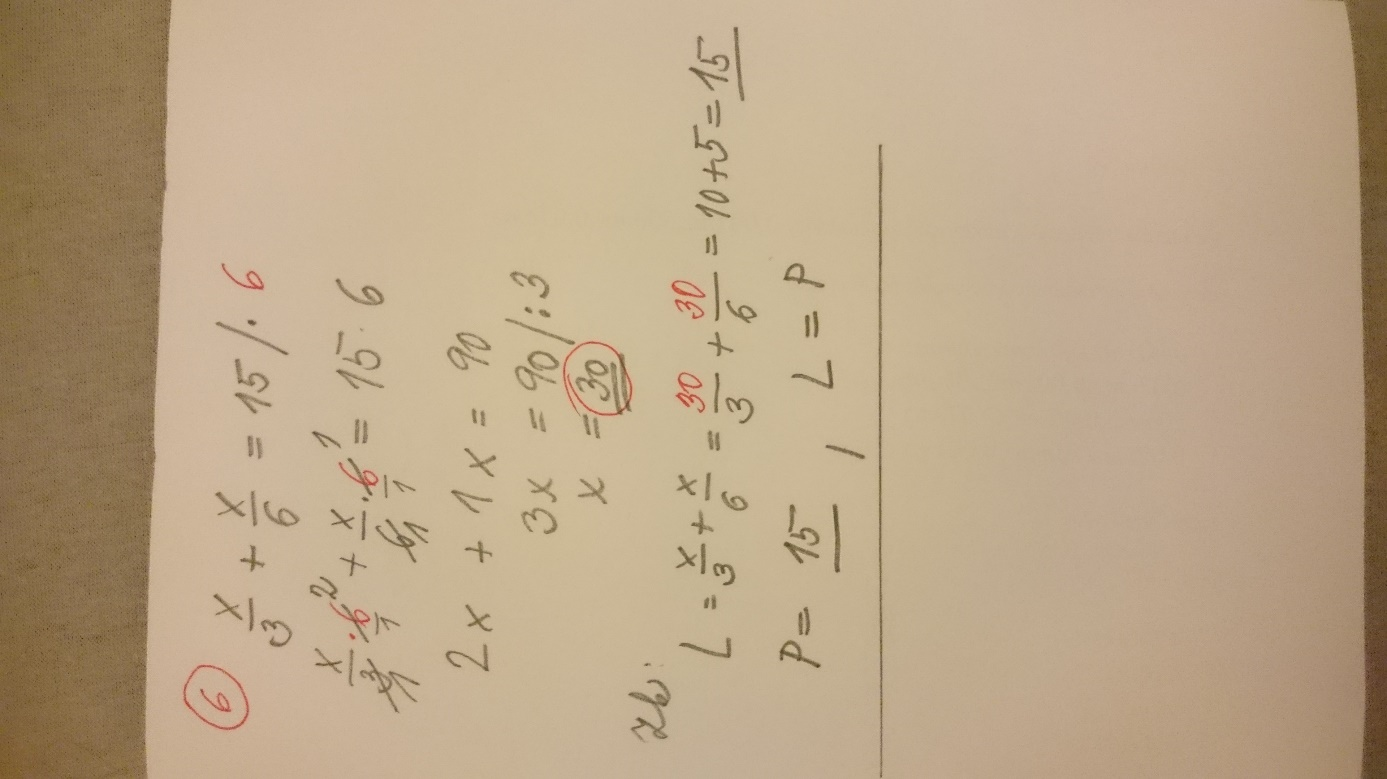 6 x/3 + x/6 = 15 /· 6
x/3 1 · 6/1 2 + x/6 1 · 6/1 1 = 15 · 6
2x + 1x = 90
3x = 90 /:3
x = 30
Zk:
L = x/3 + x/6 = 30/3 + 30/6 = 10+5 = 15
P = 15 , L = P